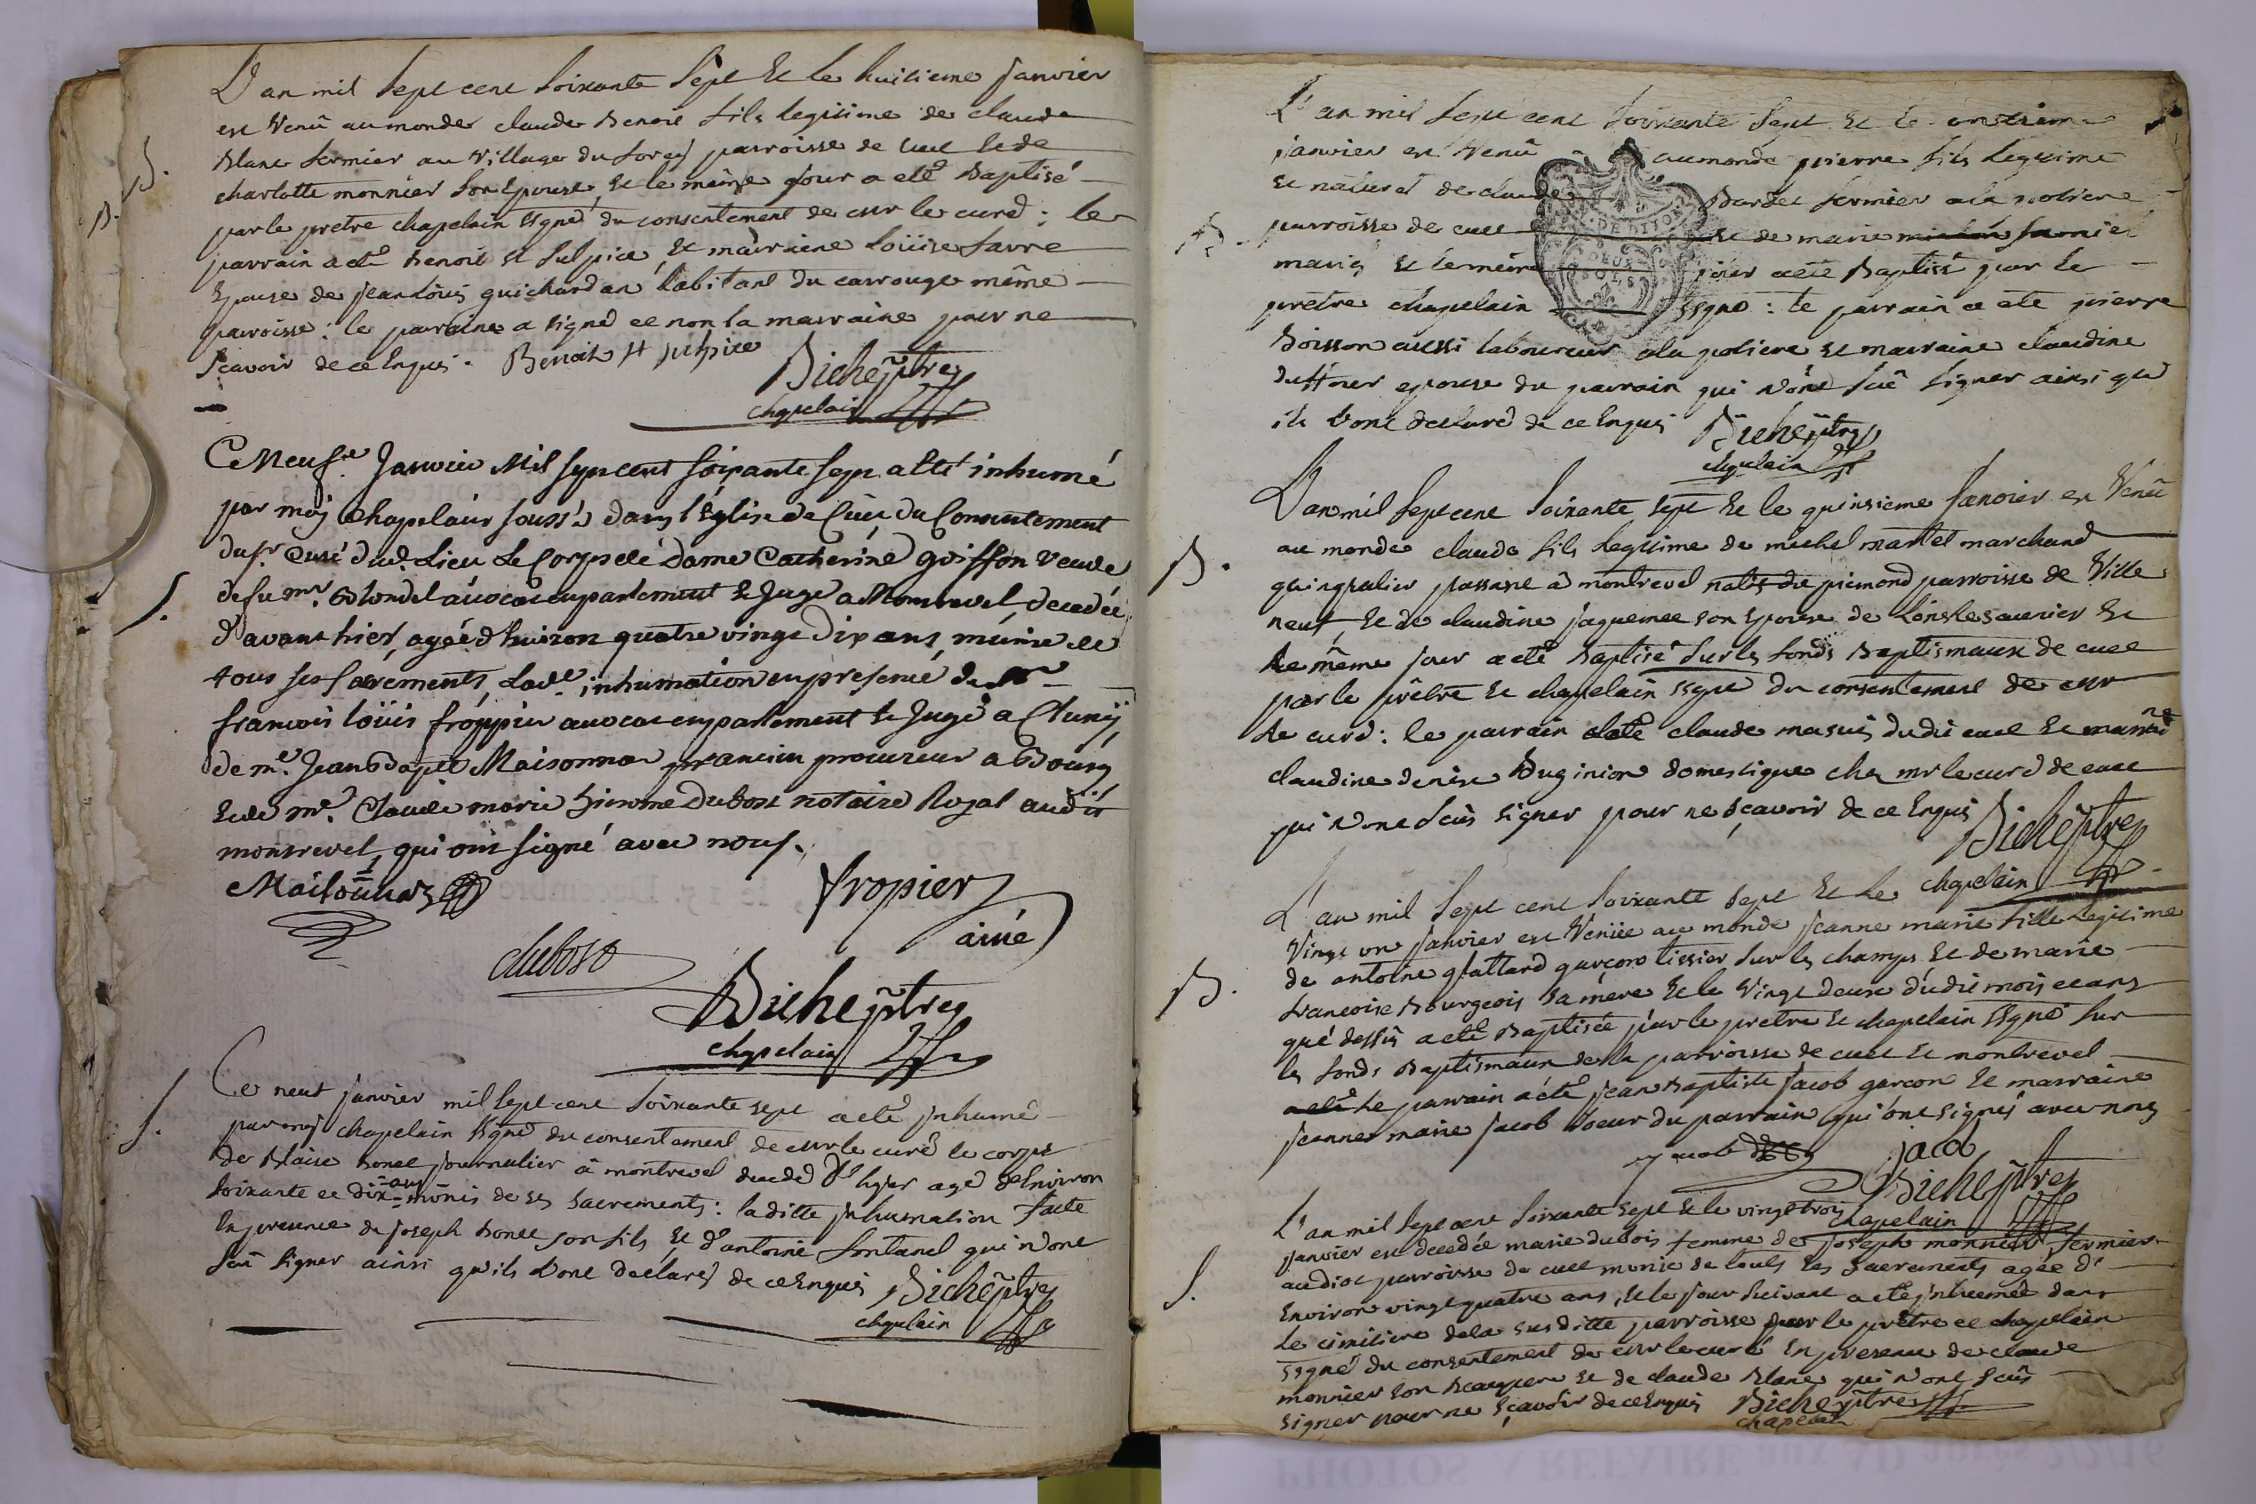 L'an mil sept cent soixante sept et le huitieme janvier
est venu au monde claude Benoit fils legitime de claude
Blanc fermier au village du foreÿ parroisse de cuet et de
B.
charlotte monnier son epouse, et le même jour a eté Baptisé
B.
par le pretre chapelain ssigné du consentement de mr le curé: le
parrain a eté Benoit st sulpice, et marraine loüise favre
Epouse de jean loüis guichardan habitant du carrouge même
parroisse: le parraine a signé et non la marraine pour ne
scavoir de ce Enquis. Benoit st sulpice
Biche ptre
chapelain
Ce Neufe. Janvier Mil sept cent soixante sept a eté inhumé
par moÿ Chapelain souss'é dans l'Église de Cuet du Consentement
du sr. Curé dud. Lieu Le Corps de dame Catherine goiffon veuve
de feu mr. Blondel avocat en parlement et Juge a Montrevel, decedée
S.
d'avant hier, agée d'huiron quatre vingt dix ans, munie de
tous ses sacrements, Lade. inhumation en presence de mr
francois loüis froppier avocat en parlement et Juge a Clunÿ,
de me. Jean Baptte Maisonnas ancien procureur a Bourg
et de me. Claude marie hierome Dubost notaire Royal audit
montrevel, qui ont signé avec nous.
Maisonnas
fropier
ainé
dubost
Biche ptre
chapelain
Ce neuf janvier mil sept cent soixante sept a eté inhumé
par moÿ chapelain ssigné du consentement de mr le curé le corps
S.
de Blaise Bonet journalier à montrevel decedé d'hyer agé d'Environ
soixante et dix ans munis de ses sacrements: la ditte inhumation faite
En presence de joseph Bonet son fils et d'antoine fontanel qui n'ont
sçu signer ainsi qu'ils l'ont declaré de ce Enquis Biche ptre
chapelain
L'an mil sept cent soixante sept et le onzieme
janvier est venu au monde pierre fils legitime
et naturel de claude Bardet fermier a la poliere
B.
parroisse de cuet et de marie fournier
mariés et le même jour a eté Baptisé par le
pretre chapelain ssigné: le parrain a eté pierre
Boisson aussi laboureur a la poliere et marraine claudine
dufour epouse du parrain qui n'ont sçu signer ainsi qu'
ils l'ont declaré de ce Enquis Biche ptre
chapelain
L'an mil sept cent soixante sept et le quinsieme janvier est venu
au monde claude fils legitime de michel martel marchand
B.
quinqualier passant à montrevel natif du piemond parroisse de Ville
neuf, et de claudine jaquemet son epouse de lons le saunier et
le même jour a eté Baptisé sur les fonds Baptismaux de cuet
par le prêtre et chapelain ssigné du consentement de mr
le curé: le parrain a eté claude masuis dudit cuet et marraine
claudine denise Buginion domestique chez mr le curé de cuet
qui n'ont sçus signer pour ne sçavoir de ce Enquis Biche ptre
chapelain
L'an mil sept cent soixante sept et le
vingt un janvier est venüe au monde jeanne marie fille legitime
de antoine glattard garçon tissier sur les champs et de marie
B.
francoise Bourgeois sa mere et le vingt deux dudit mois et ans
que dessus a eté Baptisée par le pretre et chapelain ssigné sur
les fonds Baptismaux de la parroisse de cuet et montrevel
a eté le parrain a eté jean Baptiste jacob garçon et marraine
jeanne marie jacob soeur du parrain qui ont signés avec nous
jacob
jacob
Biche ptre
chapelain
L'an mil sept cent soixante sept et le vingt trois
janvier est decedée marie dubois femme de joseph monnier fermier
audiot parroisse de cuet munie de touts les sacrements agée d'
S.
Environ vingt quatre ans, et le jour suivant a eté inhumée dans
le cimitiere de la susditte parroisse par le prêtre et chapelain
ssigné du consentement de mr le curé En presence de claude
monnier son Beaupere et de claude Blanc qui n'ont sçus
signer pour ne sçavoir de ce Enquis Biche ptre
chapelain